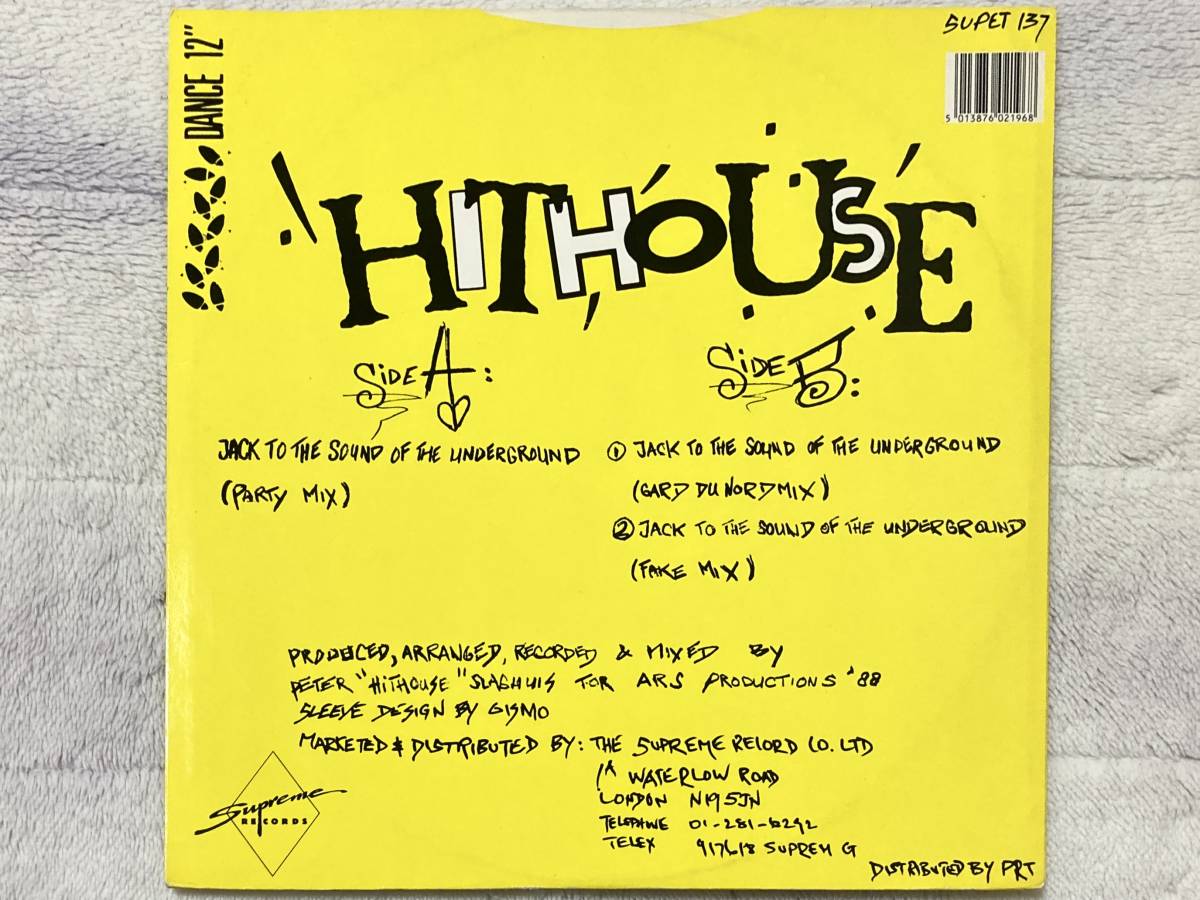 SUPET 137
DANCE 12"
5 013876 021968
HITHOUSE
SIDE A:
JACK TO THE SOUND OF THE UNDERGROUND
(PARTY MIX)
SIDE B:
① JACK TO THE SOUND OF THE UNDERGROUND
(GARD DU NORD MIX)
② JACK TO THE SOUND OF THE UNDERGROUND
(FAKE MIX)
PRODUCED, ARRANGED, RECORDED & MIXED BY
PETER "HITHOUSE" SLAGHUIS FOR ARS PRODUCTIONS '88
SLEEVE DESIGN BY GISMO
MARKETED & DISTRIBUTED BY: THE SUPREME RECORD CO. LTD
1A WATERLOW ROAD
LONDON N19 5JN
TELEPHONE 01-281-6292
TELEX 917618 SUPREM G
Supreme
RECORDS
DISTRIBUTED BY PRT